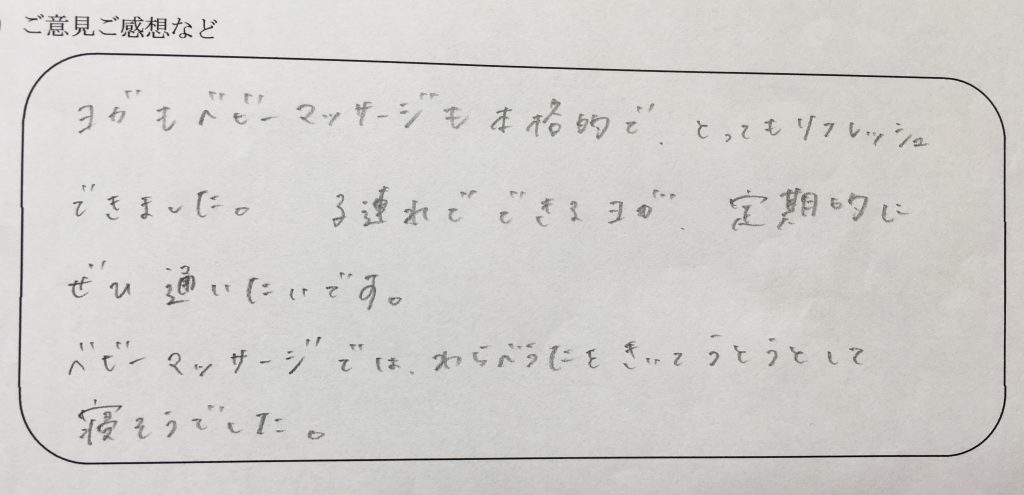 ご意見ご感想など
ヨガもベビーマッサージも本格的で、とってもリフレッシュ
できました。 子連れでできるヨガ、定期的に
ぜひ通いたいです。
ベビーマッサージでは、わらべうたをきいてうとうとして
寝そうでした。